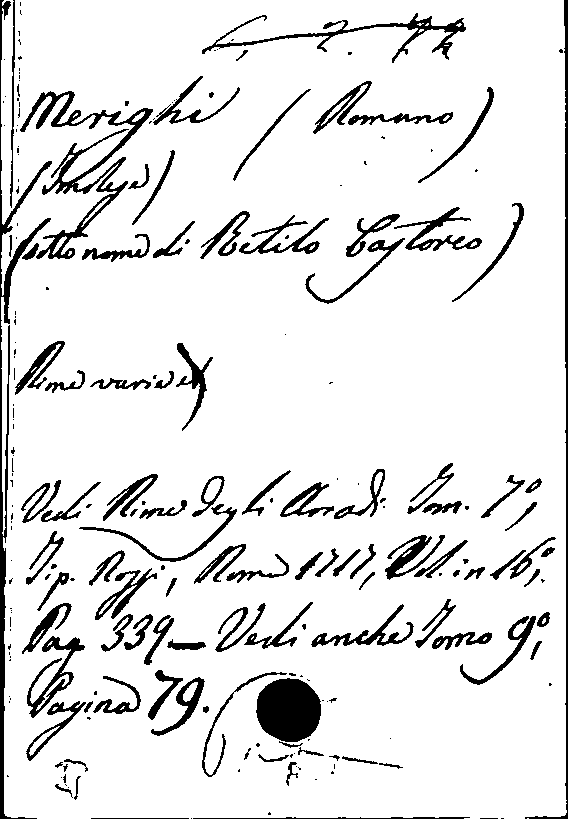 Merighi (Romano)
(Imolese)
(sotto nome di Retilo Castoreo)
Rime varie
Vedi Rime degli Arcadi Tom. 7º,
Tip. Rossi, Roma 1717, Vol. in 16º,
Pag 339 — Vedi anche Tomo 9º,
Pagina 79.